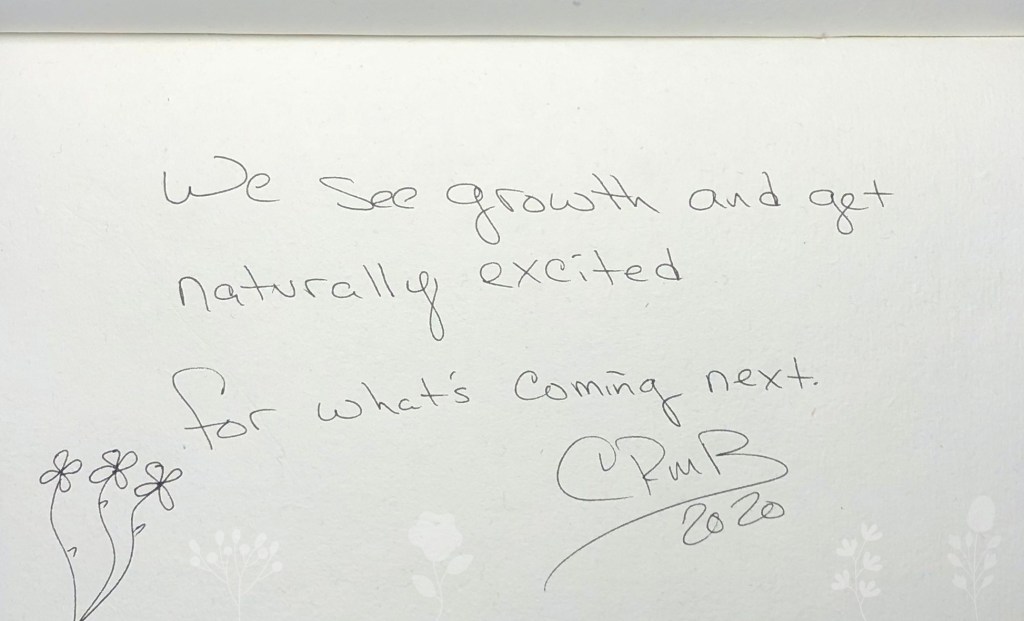 We see growth and get
naturally excited
for what's coming next.
CRMB
2020